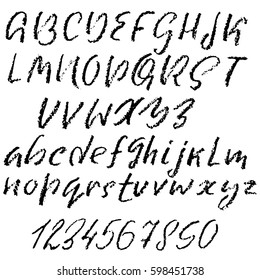 ABCDEFGHJK
LMNOPQRST
UVWXYZ
abcdefghijklm
nopqrstuvwxyz
1234567890
shutterstock.com · 598451738